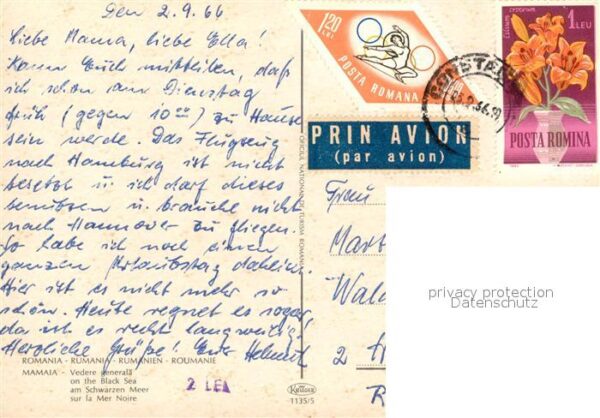 Den 2.9.66
Liebe Mama, liebe Ella!
Kann Euch mitteilen, daß
ich schon am Dienstag
früh (gegen 10 00) zu Hause
sein werde. Das Flugzeug
nach Hamburg ist nicht
besetzt u. ich darf dieses
benutzen u. brauche nicht
nach Hannover zu fliegen.
So habe ich noch einen
ganzen Urlaubstag daheim.
Hier ist es nicht mehr so
schön. Heute regnet es sogar,
da ist es recht langweilig.
Herzliche Grüße! Euer Helmut
ROMANIA - RUMANIA - RUMÄNIEN - ROUMANIE
MAMAIA - Vedere generală
on the Black Sea
am Schwarzen Meer
sur la Mer Noire
2 LEI
OFICIUL NATIONAL DE TURISM ROMANIA
1135/5
1.20
LEI
POSTA ROMANA
PRIN AVION
(par avion)
1 LEU
POSTA ROMINA
Frau
Mart
Wald
2 H
R
privacy protection
Datenschutz